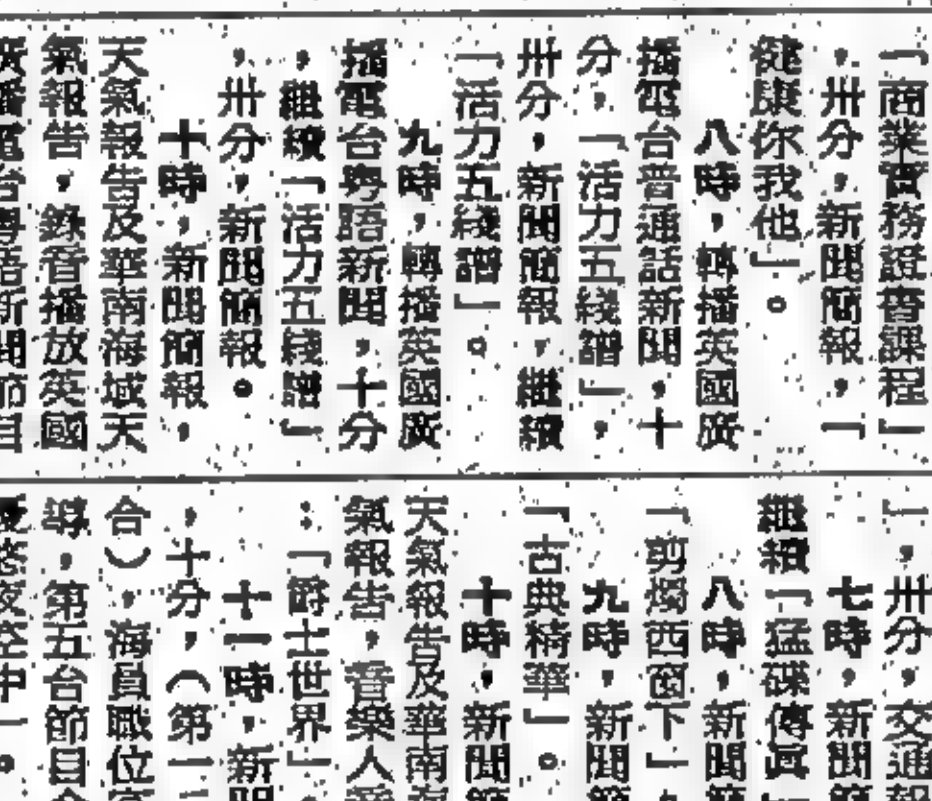 「商業實務證書課程」
，卅分，新聞簡報，「
健康你我他」。
八時，轉播英國廣
播電台普通話新聞，十
分，「活力五綫譜」，
卅分，新聞簡報，繼續
「活力五綫譜」。
九時，轉播英國廣
播電台粵語新聞，十分
，繼續「活力五綫譜」
，卅分，新聞簡報。
十時，新聞簡報，
天氣報告及華南海域天
氣報告，錄音播放英國
播電台粵語新聞節目
」，卅分，交通
七時，新聞
繼續「猛碟傳真
八時，新聞
「剪燭西窗下」
九時，新聞
「古典精華」。
十時，新聞
天氣報告及華南
氣報告，音樂人
：「爵士世界」
十一時，新
，十分，（第一
合），海員職位
導，第五台節目